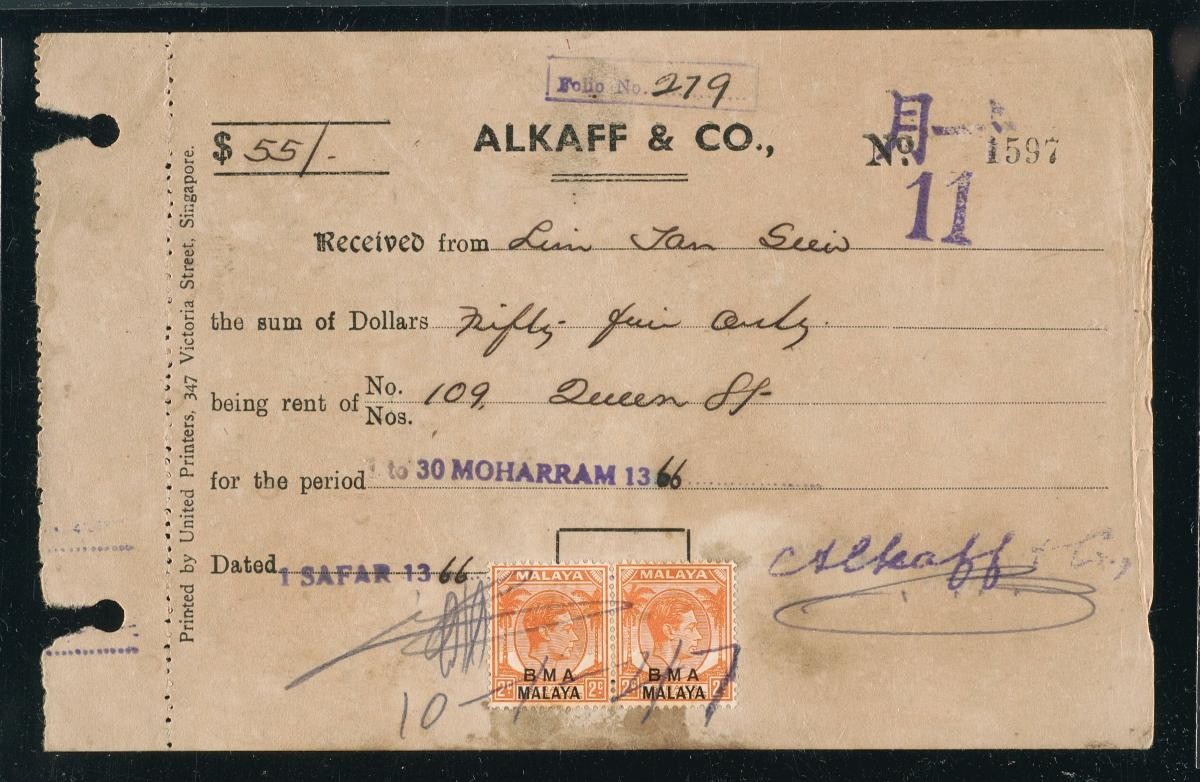 Folio No. 279
$ 55/-
ALKAFF & CO.,
No. 1597
月一
11
Received from Lim Tan Seio
the sum of Dollars Fifty five only.
being rent of No. Nos. 109, Queen St
for the period 1 to 30 MOHARRAM 1366
Dated 1 SAFAR 1366
Alkaff & Co.,
MALAYA MALAYA
BMA BMA
2c MALAYA 2c 2c MALAYA 2c
10-1-47
Printed by United Printers, 347 Victoria Street, Singapore.